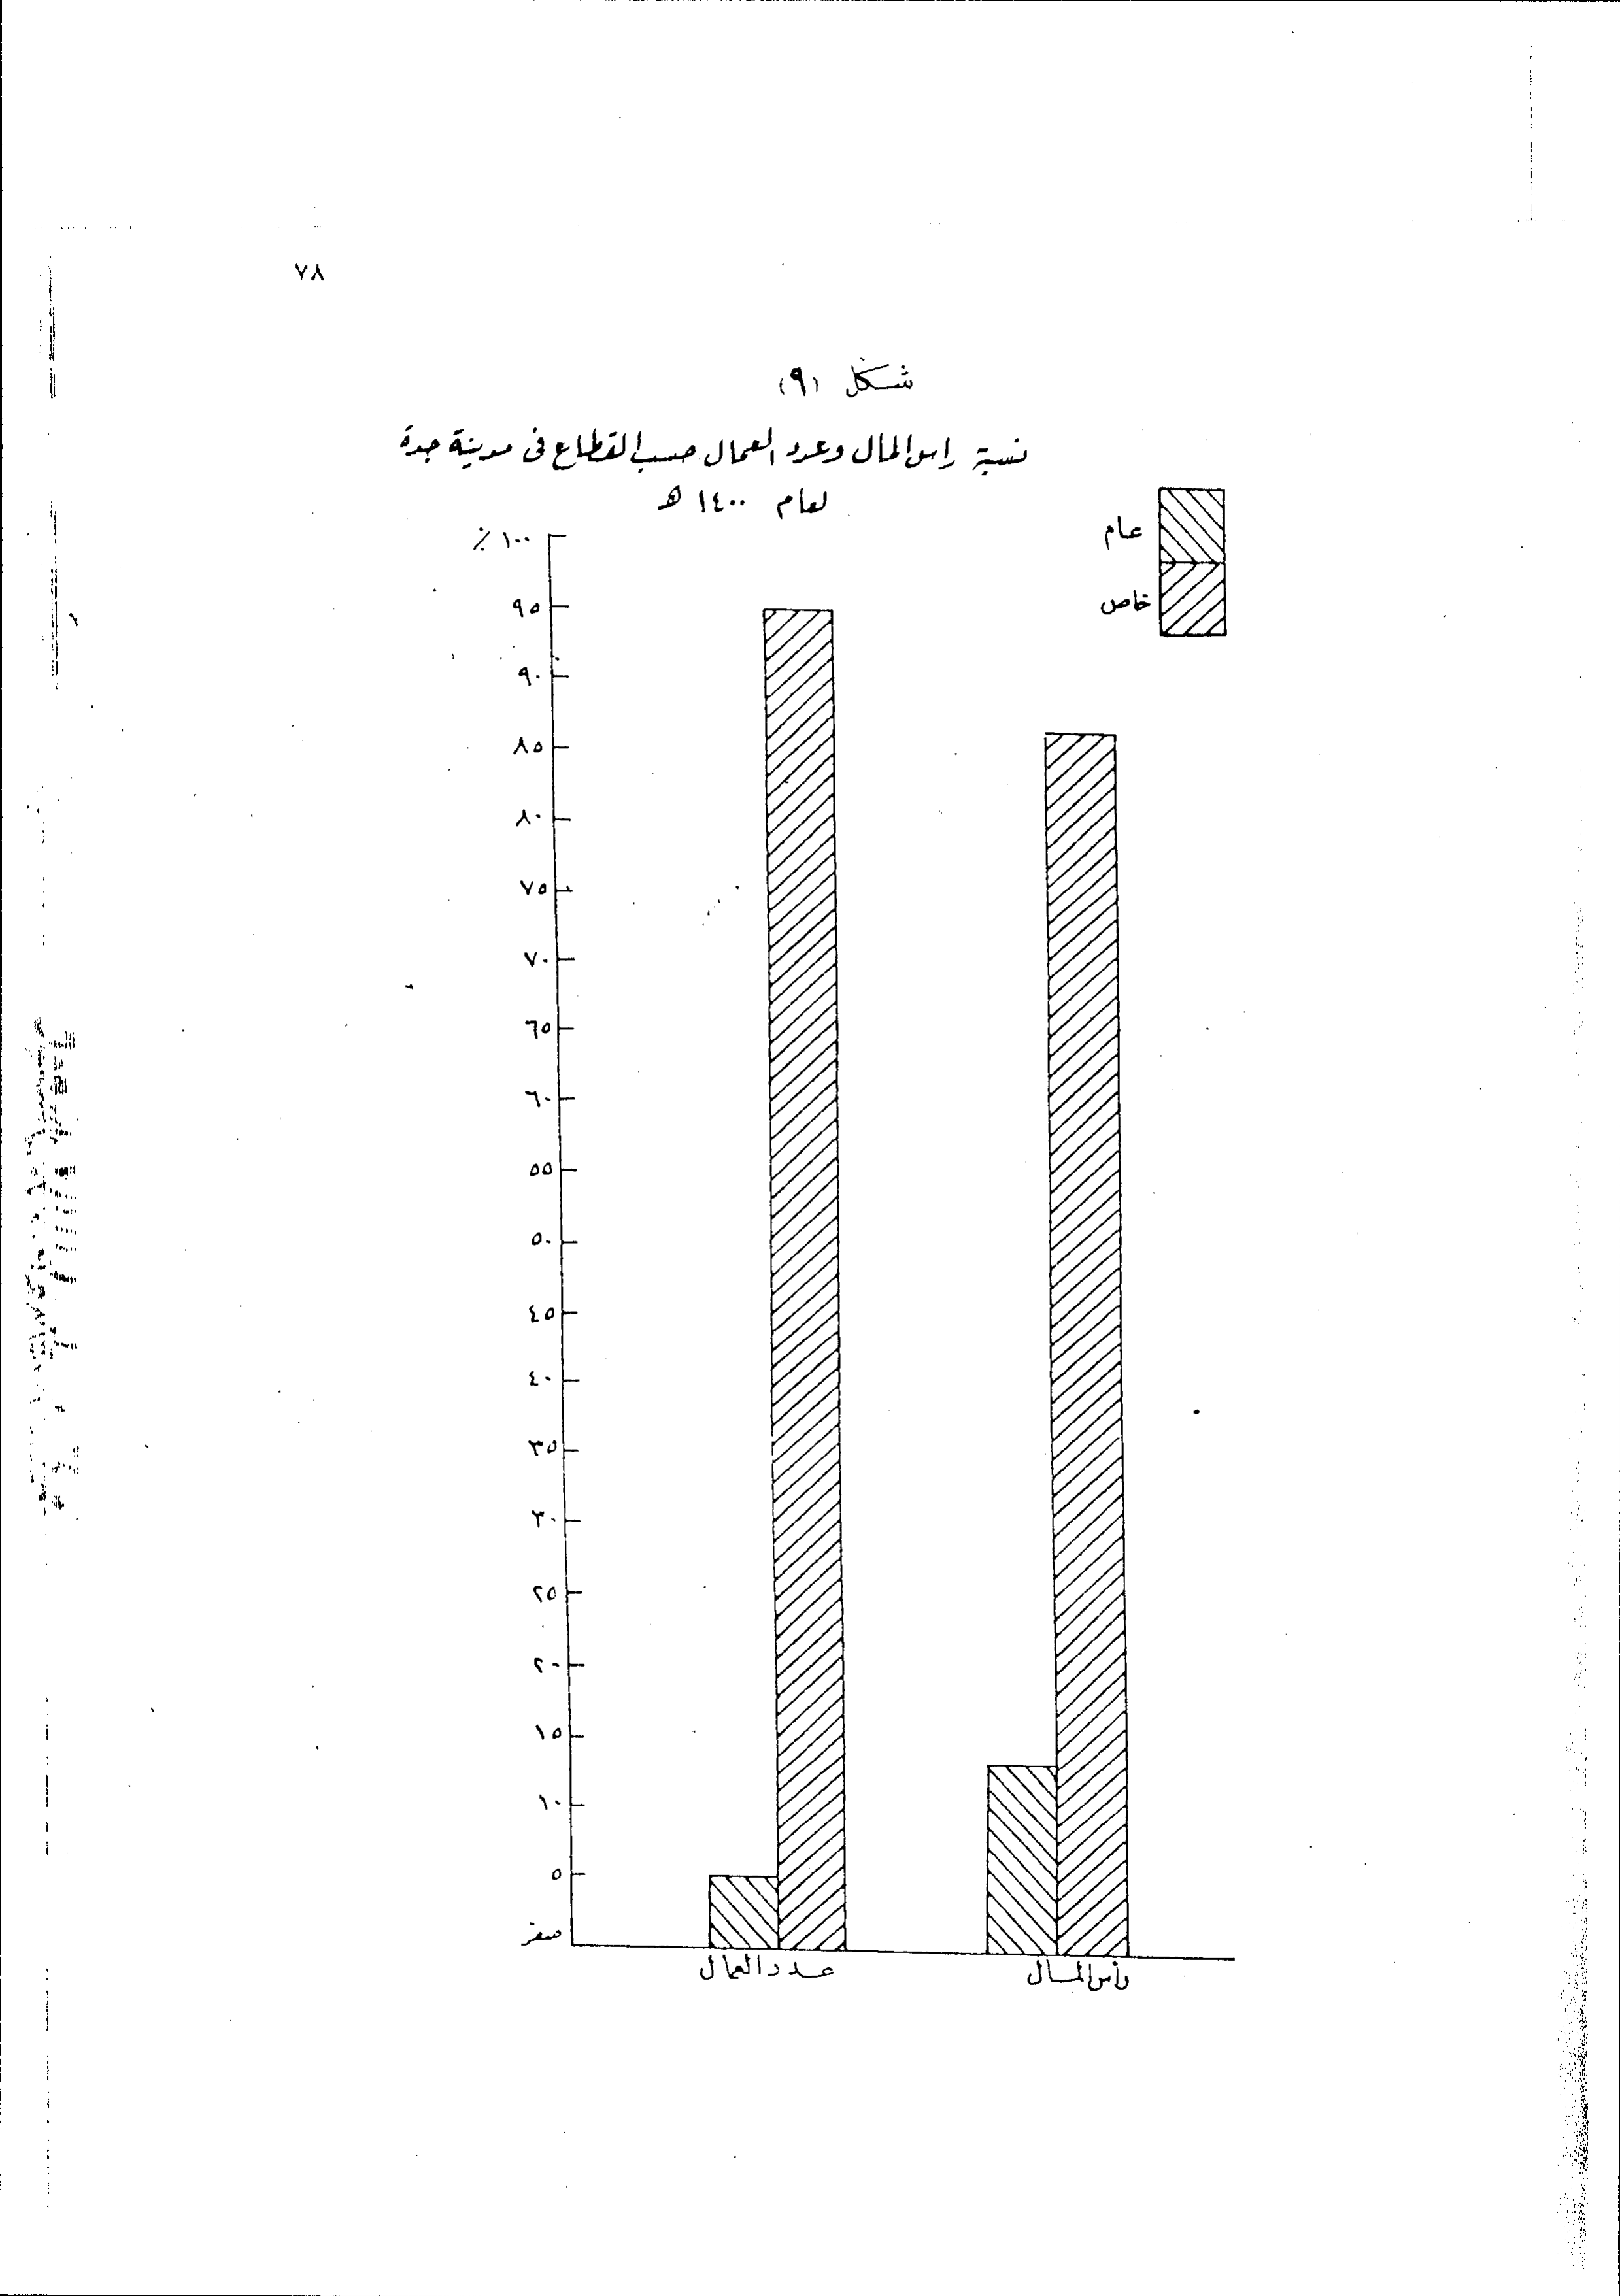 ٧٨
شكل (٩)
نسبة راس المال وعدد العمال حسب القطاع فى مدينة جدة
لعام ١٤٠٠ هـ
عام
خاص
١٠٠ ٪
٩٥
٩٠
٨٥
٨٠
٧٥
٧٠
٦٥
٦٠
٥٥
٥٠
٤٥
٤٠
٣٥
٣٠
٢٥
٢٠
١٥
١٠
٥
صفر
رأس المال
عدد العمال